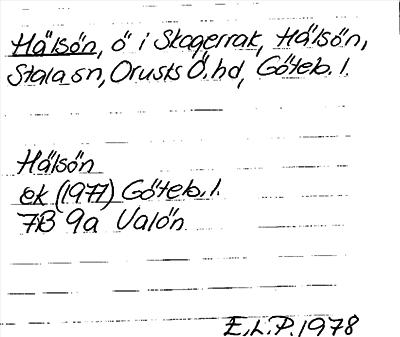 Hälsön, ö i Skagerrak, Hälsön,
Stala sn, Orusts Ö. hd, Göteb. l.
Hälsön
ek (1977) Göteb. l.
7B 9a Valön
E.L.P. 1978